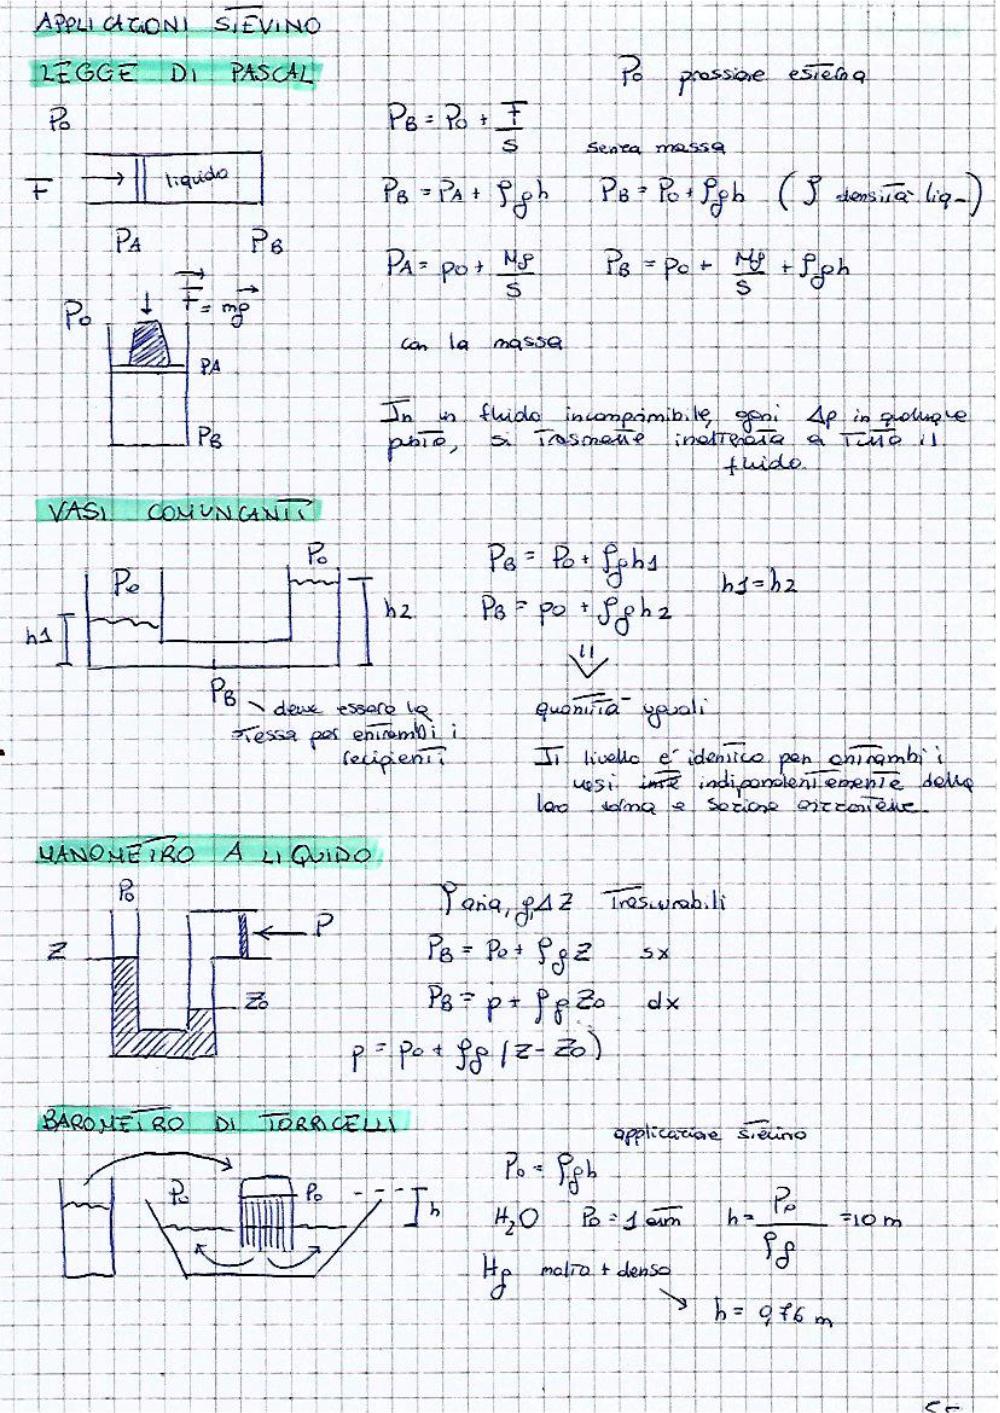 APPLICAZIONI STEVINO
LEGGE DI PASCAL
P0 pressione esterna
P0
PB = P0 + F/S
senza massa
F liquido
PB = PA + ρgh PB = P0 + ρgh (ρ densità liq-)
PA PB
PA = p0 + Mg/S PB = p0 + Mg/S + ρgh
F = mg
P0
con la massa
PA
In un fluido incomprimibile, ogni Δp in qualunque
punto, si trasmette inalterata a tutto il
fluido.
PB
VASI COMUNCANTI
P0
P0
PB = P0 + ρgh1
h1 = h2
PB = p0 + ρgh2
h1 h2
PB
deve essere la
stessa per entrambi i
recipienti
quantità uguali
Il livello e' identico per entrambi i
vasi indipendentemente della
loro forma e sezione
MANOMETRO A LIQUIDO
P0
ρ aria, g, ΔZ trascurabili
P
Z
PB = P0 + ρgZ sx
Z0
PB = p + ρgZ0 dx
p = p0 + ρg (Z - Z0)
BAROMETRO DI TORRICELLI
applicazione stevino
P0 = ρgh
P0 P0 h
H2O P0 = 1 atm h = P0/ρg = 10 m
Hg molto + denso
h = 0,76 m